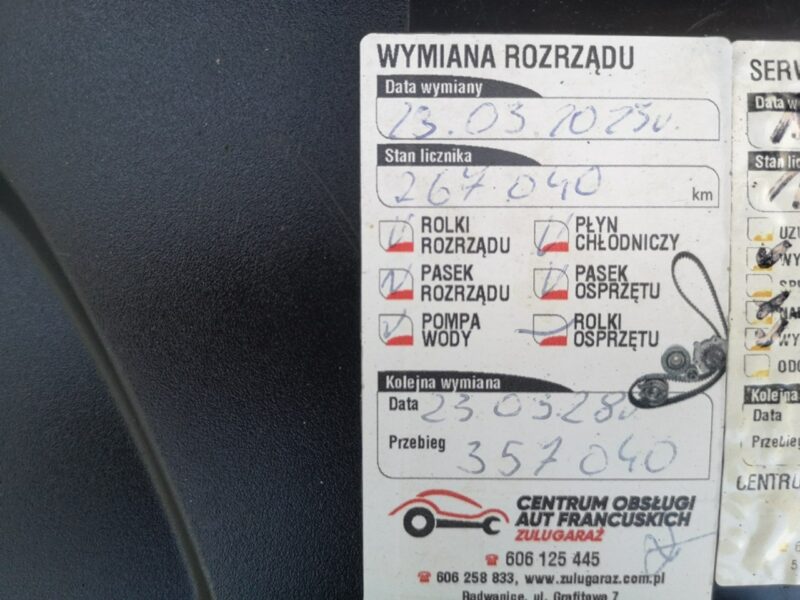 WYMIANA ROZRZĄDU
Data wymiany
23.03.2023r.
Stan licznika
267 040 km
ROLKI ROZRZĄDU
PŁYN CHŁODNICZY
PASEK ROZRZĄDU
PASEK OSPRZĘTU
POMPA WODY
ROLKI OSPRZĘTU
Kolejna wymiana
Data 23 03 28r
Przebieg 357 040
CENTRUM OBSŁUGI
AUT FRANCUSKICH
ZULUGARAŻ
606 125 445
606 258 833, www.zulugaraz.com.pl
Radwanice, ul. Grafitowa 7
SERW
Data w
Stan lic
UZU
WY
NAB
WY
ODG
Kolejna
Data
Przebieg
CENTRU